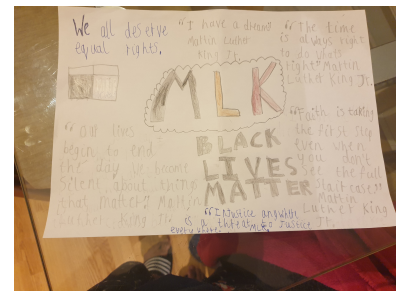 We all deserve
equal rights.
"I have a dream"
Martin Luther
King Jr.
"The time
is always right
to do what's
right" Martin
Luther King Jr.
MLK
BLACK
LIVES
MATTER
"Our lives
begin to end
the day we
silent about thing
that matter" Martin
Luther King Jr.
"Faith is taking
the first step
even when
you don't
see the full
staircase."
Martin
Luther King
Jr.
"Injustice anywhere
is a threat to Justice
everywhere" MLK